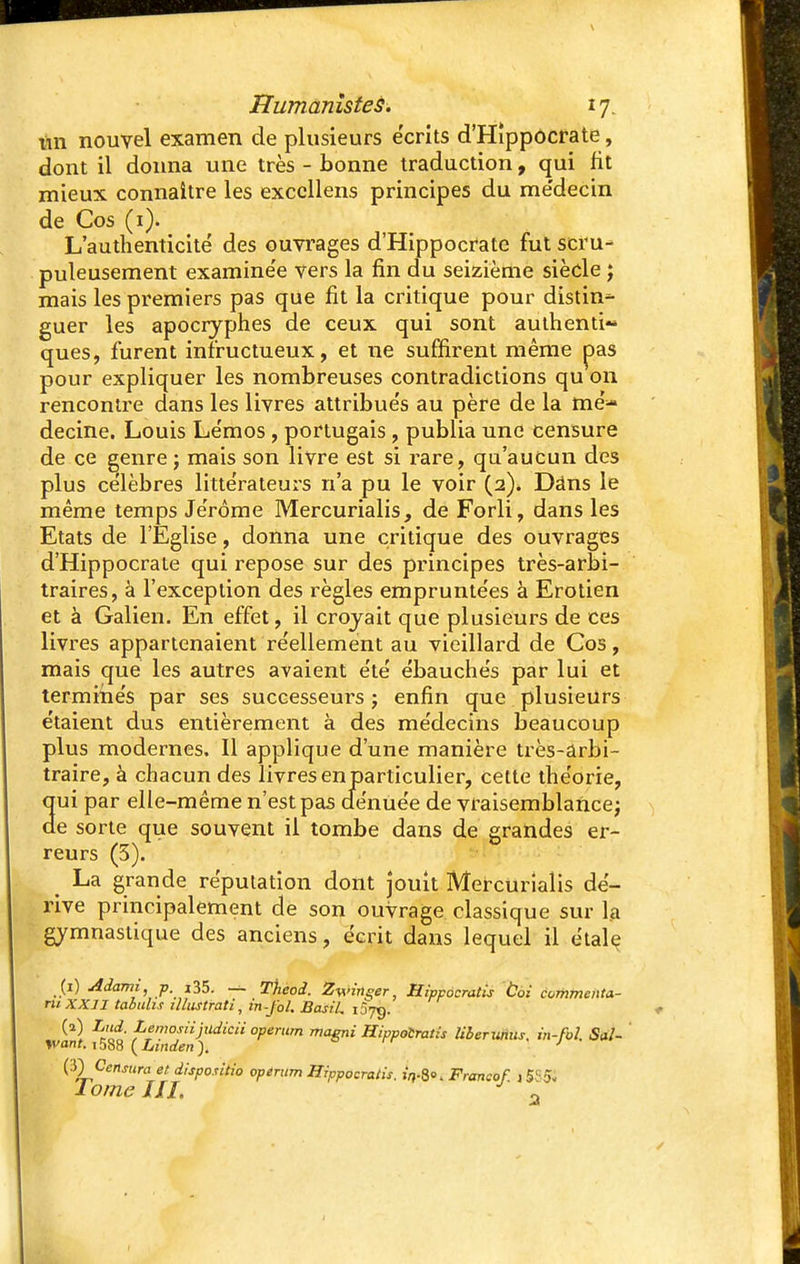 Humanistes. 17
un nouvel examen de plusieurs écrits d'Hippocrate,
dont il donna une très-bonne traduction, qui fit
mieux connaître les excellens principes du médecin
de Cos (1).
L'authenticité des ouvrages d'Hippocrate fut scru-
puleusement examinée vers la fin du seizième siècle ;
mais les premiers pas que fit la critique pour distin-
guer les apocryphes de ceux qui sont authenti-
ques, furent infructueux, et ne suffirent même pas
pour expliquer les nombreuses contradictions qu'on
rencontre dans les livres attribués au père de la mé-
decine. Louis Lémos, portugais, publia une censure
de ce genre ; mais son livre est si rare, qu'aucun des
plus célèbres littérateurs n'a pu le voir (2). Dans le
même temps Jérôme Mercurialis, de Forli, dans les
Etats de l'Eglise, donna une critique des ouvrages
d'Hippocrate qui repose sur des principes très-arbi-
traires, à l'exception des règles empruntées à Erotien
et à Galien. En effet, il croyait que plusieurs de ces
livres appartenaient réellement au vieillard de Cos,
mais que les autres avaient été ébauchés par lui et
terminés par ses successeurs ; enfin que plusieurs
étaient dus entièrement à des médecins beaucoup
plus modernes. Il applique d'une manière très-arbi-
traire, à chacun des livres en particulier, cette théorie,
qui par elle-même n'est pas dénuée de vraisemblance;
de sorte que souvent il tombe dans de grandes er-
reurs (3).
La grande réputation dont jouit Mercurialis dé-
rive principalement de son ouvrage classique sur la
gymnastique des anciens, écrit dans lequel il étale
(1) Adami, p. 135. — Theod. Zwinger, Hippocratis Coi commenta-
rii XXII tabulis illustrati, in-fol. Basil. 1579.
(2) Lud. Lemosii judicii operum magni Hippocratis liber unus. in-fol. Sal-
mant. 1588 (Linden).
(3) Censura et dispositio operum Hippocratis. in-8°. Francof. 1585.
Tome III. 2